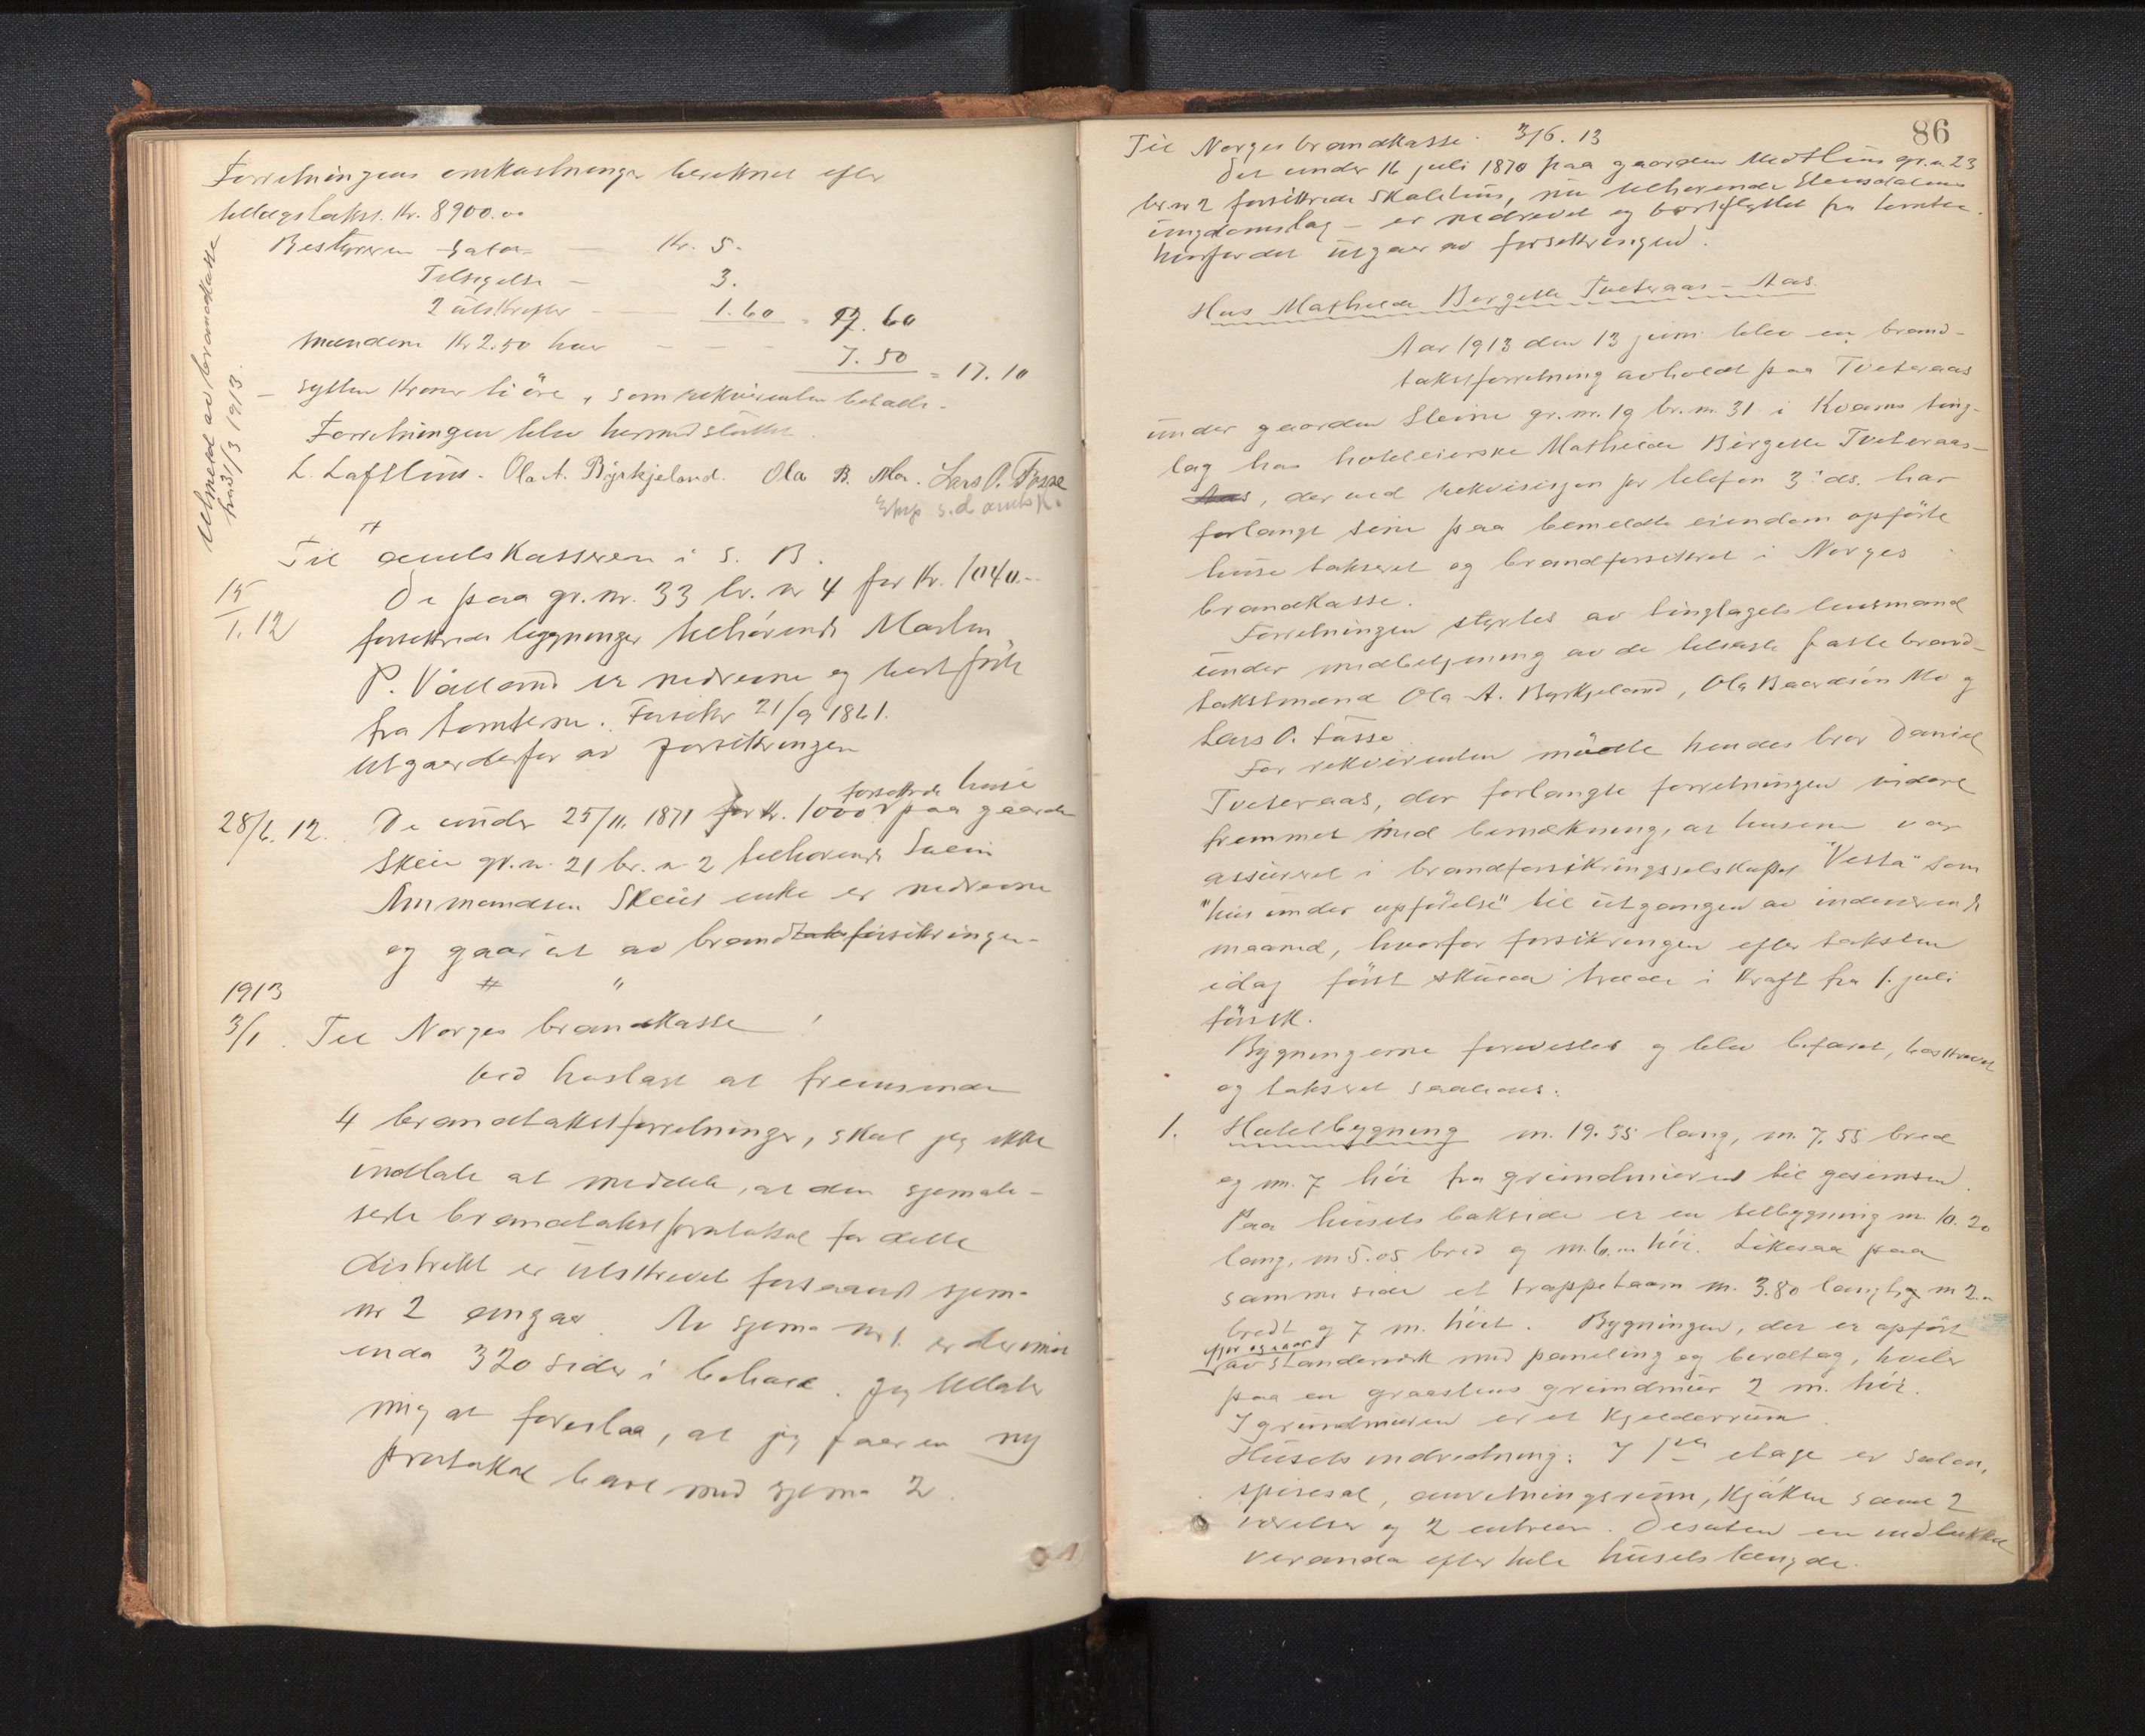 Forretningens omkostninger berektnet efter
tillægstakst. Kr. 8900.00
Bestyreren Salær — Kr. 5.
Tilsigelse — 3.
2 utskrifter — 1.60 = 9.60
mændene Kr 2.50 hver — — — 7.50 = 17.10
— sytten Kroner ti öre, som rekvirenten betalte.
Forretningen blev hermed sluttet.
L. Laftun. Ola A. Byrkjeland. Ola B. Mo. Lars O. Fosse
Eksp. s. d. amtsk.
Utmeldt av brandkasse
fra 31/3 1913.
Til amtskasseren i S. B.
15/1. 12
De paa gr. nr. 33 br. nr 4 for Kr. 1040.-
forsikrede bygninger tilhörende Martin
P. Vaalland er nedrevne og bortförte
fra tomterne. Forsikr 21/9 1861.
Utgaar derfor av forsikringen
28/6. 12. De under 25/11. 1871 for Kr. 1000 forsikrede huse paa gaarden
Skeie gr. n. 21 br. n 2 tilhörende Svein
Ammundsen Skeies enke er nedrevne
og gaar ut av brandtakstforsikringen.
# "
1913
3/1. Til Norges brandkasse!
Ved hoslagt at fremsende
4 brandtakstforretninger, skal jeg ikke
undlate at meddele, at den sjemati-
serte brandtakstprotokol for dette
distrikt er utskrevet forsaavidt sjem-
nr 2 angaar. Av sjema nr 1. er derimot
enda 320 sider i behold. Jeg tillater
mig at foreslaa, at jeg faar en ny
protokol bare med sjema 2.
86
Til Norges brandkasse. 3/6. 13
Det under 16 juli 1870 paa gaarden Medtun gr. n 23
br. nr 2 forsikrede skolehus, nu tilhörende Steinsdalens
ungdomslag — er nedrevet og bortflyttet fra tomten.
hvorfor det utgaar av forsikringen.
Hus Mathilde Bergette Tveteraas - Aas.
Aar 1913 den 13 juni blev en brand-
takstforretning avholdt paa Tveteraas
under gaarden Steine gr. nr. 19 br. nr. 31 i Kvams ting-
lag hos hoteleierske Mathilde Bergette Tveteraas-
Aas, der ved rekvisisjon per telefon 3. ds. har
forlangt sine paa bemeldte eiendom opförte
huse taksert og brandforsikret i Norges
brandkasse.
Forretningen styrtes av tinglagets lensmand
under medbetjening av de tilsatte faste brand-
takstmænd Ola A. Byrkjeland, Ola Baardsön Mo og
Lars O. Fosse
For rekvirenten mödte hendes bror Daniel
Tveteraas, der forlangte forretningen videre
fremmet med bemerkning, at husene var
assurert i brandforsikringsselskapet "Vesta" som
"hus under opförelse" til utgangen av indeværende
maaned, hvorfor forsikringen efter taksten
idag först skulde træde i Kraft fra 1. juli
förstk.
Bygningerne forevistes og blev befaret, beskrevet
og taksert saaledes:
1. Hotelbygning m. 19.35 lang, m. 7.55 bred
og m. 7 höi fra grundmuren til gesimsen.
Paa husets bakside er en tilbygning m. 10.20
lang, m 5.05 bred og m. 6.00 höi. Likesaa paa
samme side et trappetaarn m. 3.80 langt og m 2.00
bredt og 7 m. höit. Bygningen, der er opfört
ifjor og iaar
av standerverk med paneling og bordtag, hviler
paa en graastens grundmur 2 m. höi.
I grundmuren er et Kjelderrum.
Husets indredning: I 1ste etage er salon,
spisesal, anretningsrum, Kjökken samt 2
værelser og 2 entreer. Desuten en indlukket
veranda efter hele husets længde.